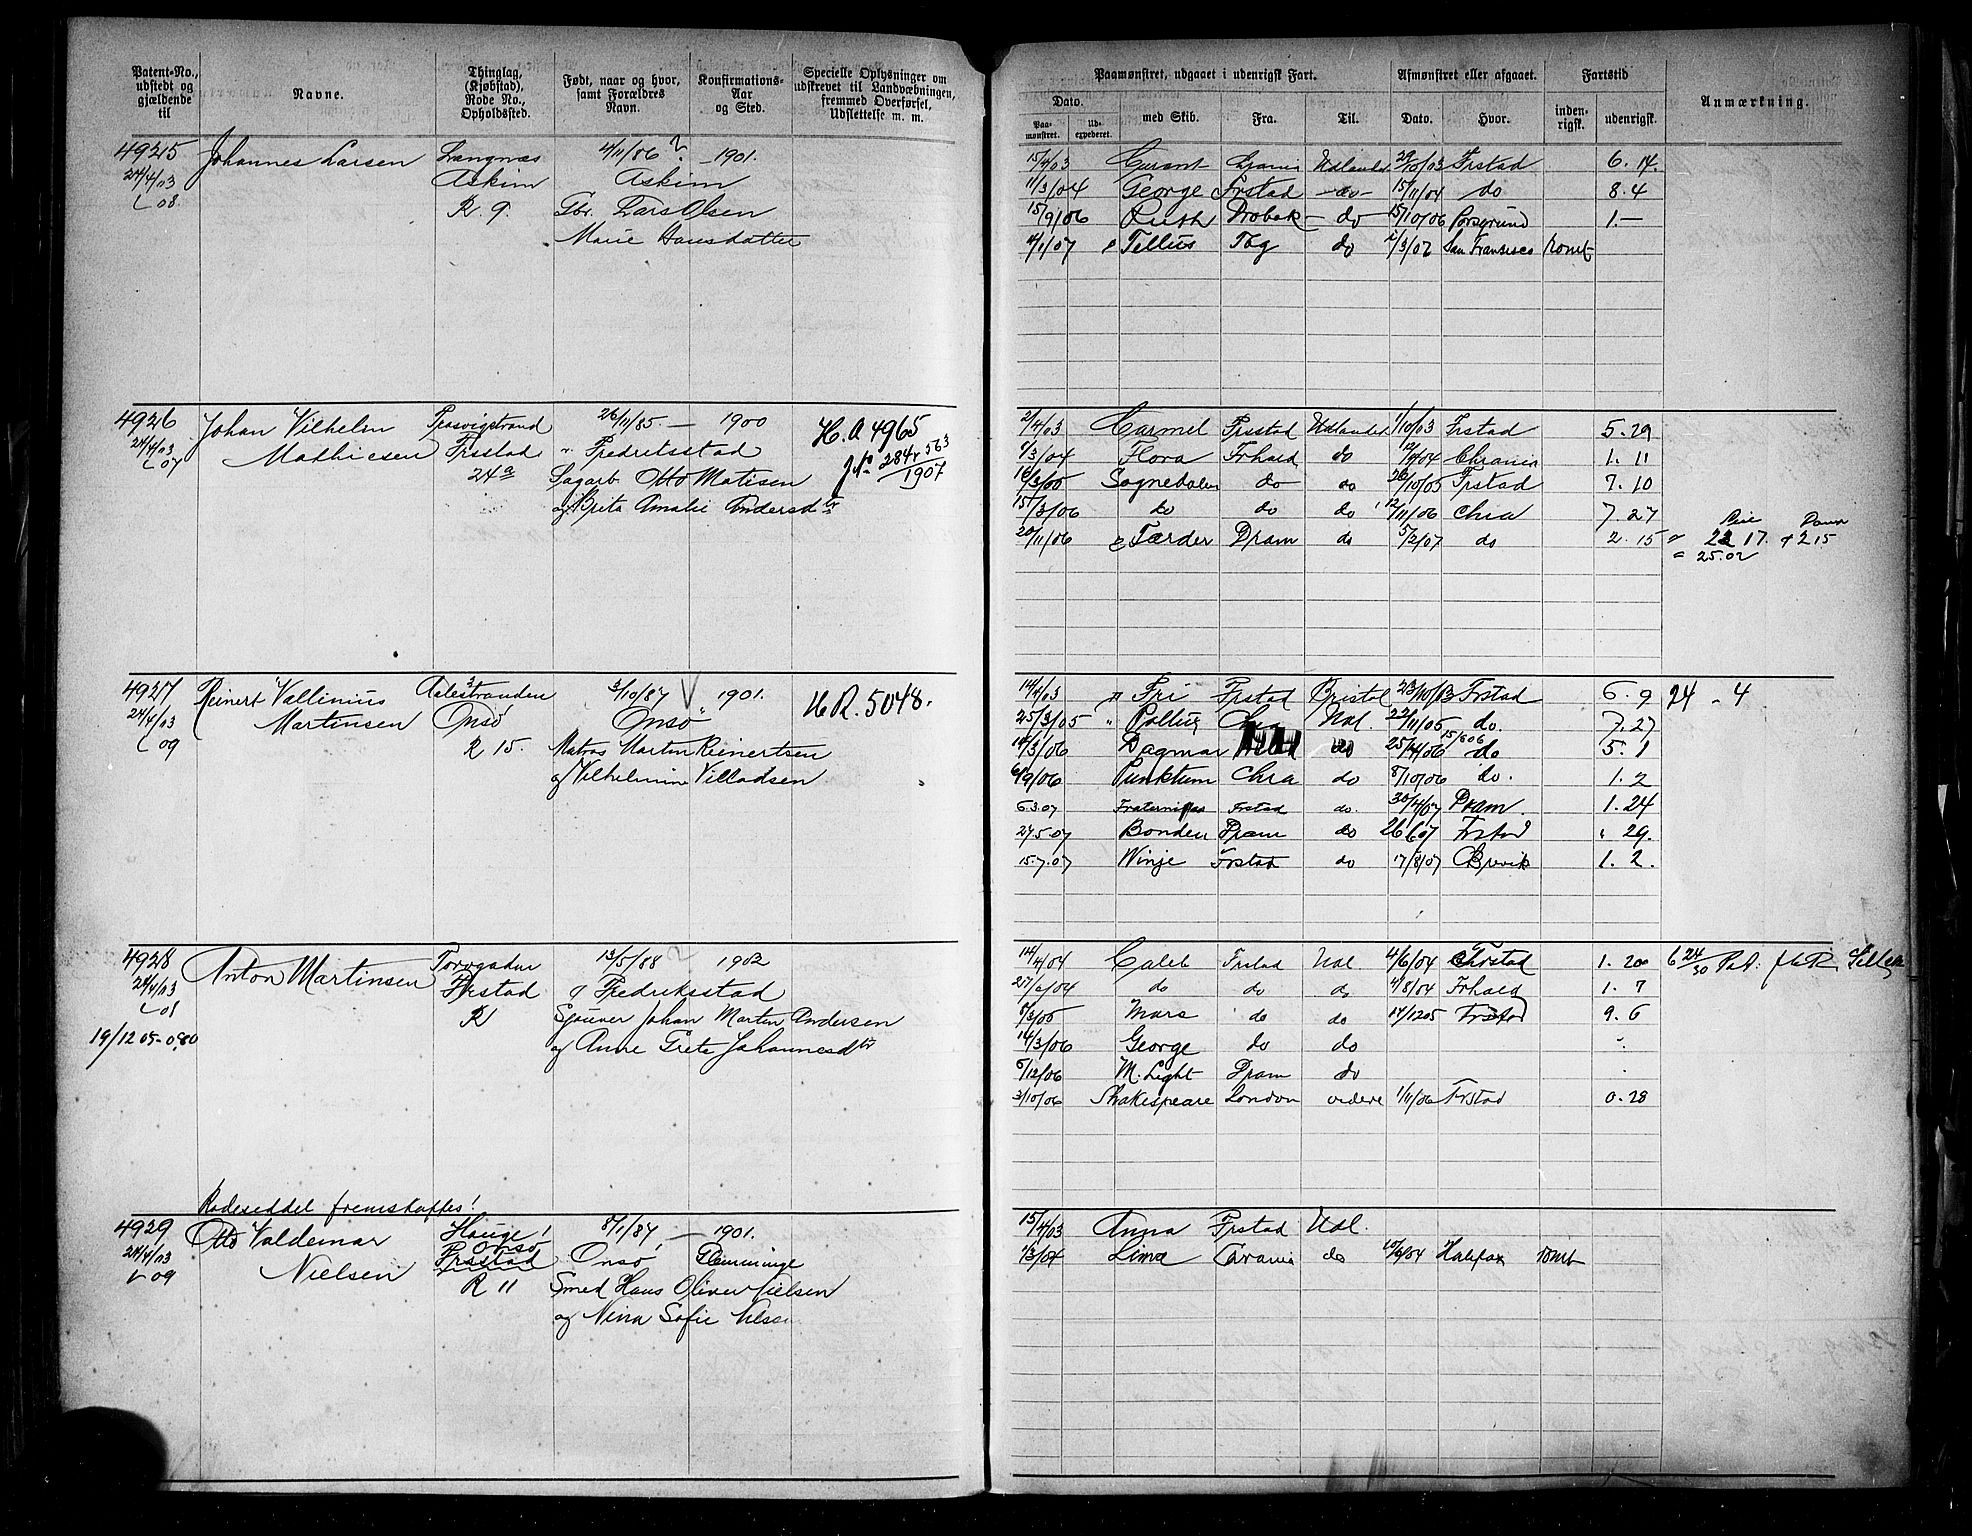 Patent-No., udstedt og gjældende til
Navne.
Thinglag, (Kjøbstad), Rode No., Opholdssted.
Født, naar og hvor, samt Forældres Navn.
Konfirmations-Aar og Sted.
Specielle Oplysninger om udskrevet til Landvæbningen, fremmed Overførsel, Udslettelse m. m.
Paamønstret, udgaaet i udenrigsk Fart.
Dato.
Paa-mønstret.
Ud-expederet.
med Skib.
Fra.
Til.
Afmønstret eller afgaaet.
Dato.
Hvor.
Fartstid
inden-rigsk.
udenrigsk.
Anmærkning.
4925 Johannes Larsen Langnæs 4/11/86 ? - 1901.
24/4/03 Askim Askim
L 08. R. 9. Gbr. Lars Olsen
Marie Hansdatter
15/4/03 Udlandet 29/10/03 Frstad 6. 14.
11/3/04 George Frstad - do - 15/11/04 do 8. 4
15/9/06 Ruth Drobak - do - 15/10/06 Porsgrund 1. -
4/1/07 Tellus Tbg do 1/3/07 San Fransisco rømt
4926 Johan Vilhelm Trosvigstrand 26/11/85. - 1900 H. A 4965
24/4/03 Mathiesen Frsstad " Fredriksstad J No 284 & 563
L 07 24a Sagarb Otto Matisen 1907
og Brita Amalie Andersdtr
2/4/03 Carmel Frsstad Udlandet 1/10/03 Frstad 5. 29
8/3/04 Flora Frhald do 12/4/04 Chrania 1. 11
16/3/05 Sognedalen do do 26/10/05 Frstad 7. 10
15/3/06 do do do 12/11/06 Chra 7. 27
20/11/06 Færder Dram do 5/2/07 do 2. 15 22 17. + 2 15
= 25.02
4927 Reinert Vallinius Aalestranden 3/10/87 1901. H R. 5048.
24/4/03 Martinsen Onsö Onsö
L 09 R 15. Matros Martin Reinertsen
og Vilhelmin Villadsen
14/4/03 " Fri Frstad Bristol 23/10/03 Frstad 6. 9 24 - 4
25/3/05 " Pollux Chra Udl. 22/11/05 do. 7. 27
14/3/06 Dagmar do 25/4/06 15/6 06 do 5. 1
6/9/06 Punktum Chra do 8/10/06 do. 1. 2
6.3.07 Fraternitas Frstad do. 30/4/07 Dram. 1. 24
27.5.07 Bonden Dram do 26 6 07 Frstad " 29.
15.7.07 Winje Frstad do 17/8/07 Brevik 1. 2.
4928 Anton Martinsen Torvgaden 13/5/88 ? 1902
24/4/03 Frstad i Fredriksstad
L 08 R Sjouer Johan Martin Andersen
19/12 05-080 og Anne Grete Johannesdtr
14/4/04 Caleb Frstad Udl. 4/6/04 Frstad 1. 20 6 24/30 Pat.
27/6/04 do do do 4/8/04 Frhald 1. 7
8/3/05 Mars do do 14/1205 Frstad 9. 6
14/3/06 George do do
5/12/06 M. Light Dram do
3/10/06 Shakespeare London videre 1/11/06 Frstad 0. 28
Rodeseddel fremskaffes!
4929 Otto Valdemar Hauge! 8/1/87 - 1901.
24/4/03 Nielsen Onsö Frsstad Onsö Glemminge
L 09 R 11 Smed Hans Oliver Nielsen
og Nina Sofie Nilss
15/4/03 Anna Frstad Udl.
1/3/04 Lina Crania do 10/6/04 Halifax rømt